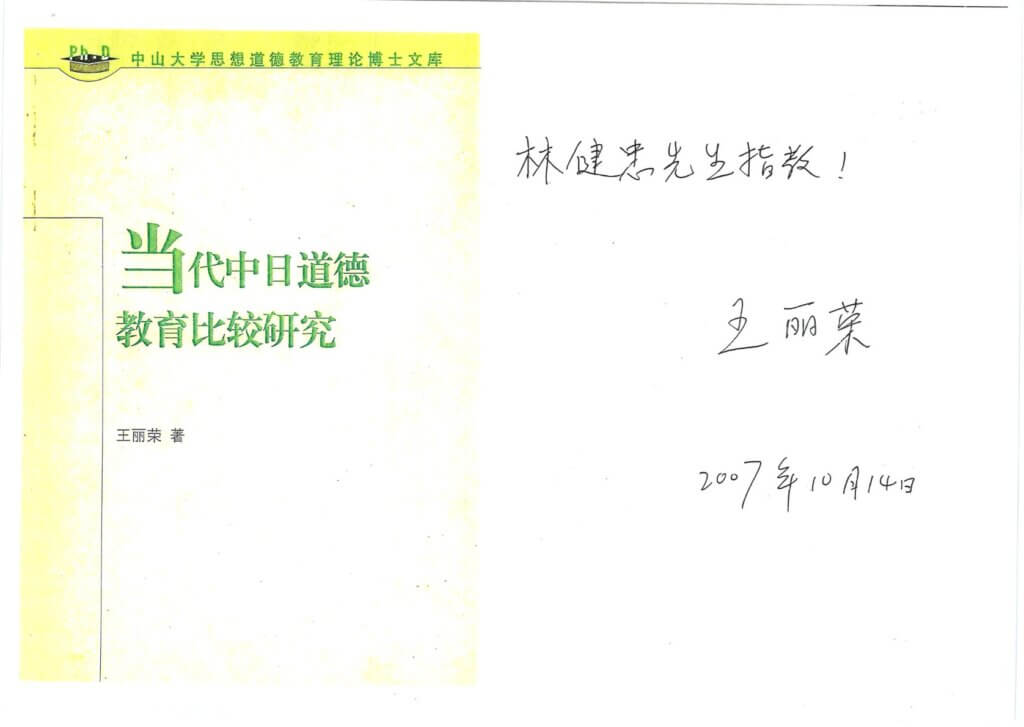 Ph D
中山大学思想道德教育理论博士文库
当代中日道德
教育比较研究
王丽荣 著
林健忠先生指教！
王丽荣
2007年10月14日